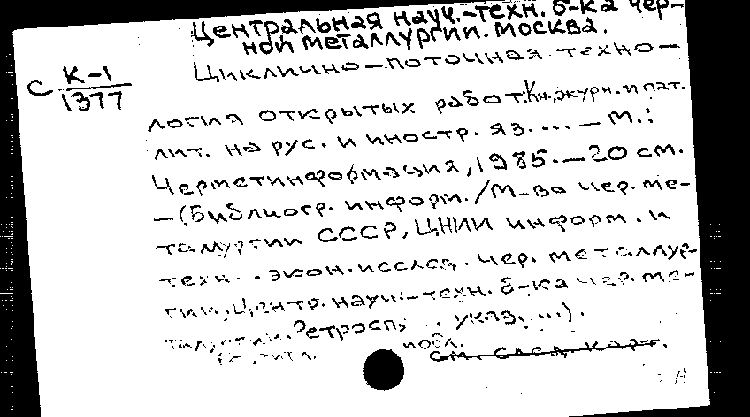 Центральная науч.-техн. б-ка чер-
ной металлургии. Москва.
С К-1
1377
Циклично-поточная техно-
логия открытых работ. Кн., журн. и пат.
лит. на рус. и иностр. яз. ... — М.:
Черметинформация, 1985. — 20 см.
— (Библиогр. информ. / М-во чер. ме-
таллургии СССР, ЦНИИ информ. и
техн.-экон. исслед. чер. металлур-
гии, Центр. науч.-техн. б-ка чер. ме-
таллургии. Ретросп. указ. ...).
тит. л.
см. след. карт.